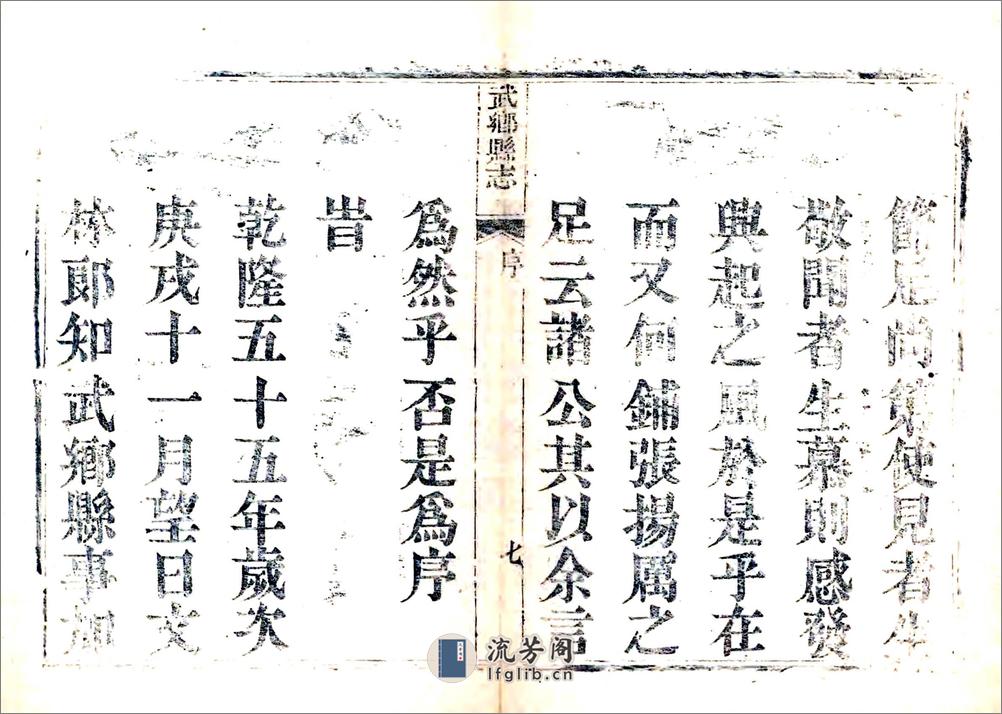 節足尚矣使見者生
敬聞者生慕則感發
興起之風於是乎在
而又何鋪張揚厲之
足云諸公其以余言
武鄉縣志
序
七
為然乎否是為序
旹
乾隆五十五年歲次
庚戌十一月望日文
林郎知武鄉縣事加
流芳阁
lfglib.cn